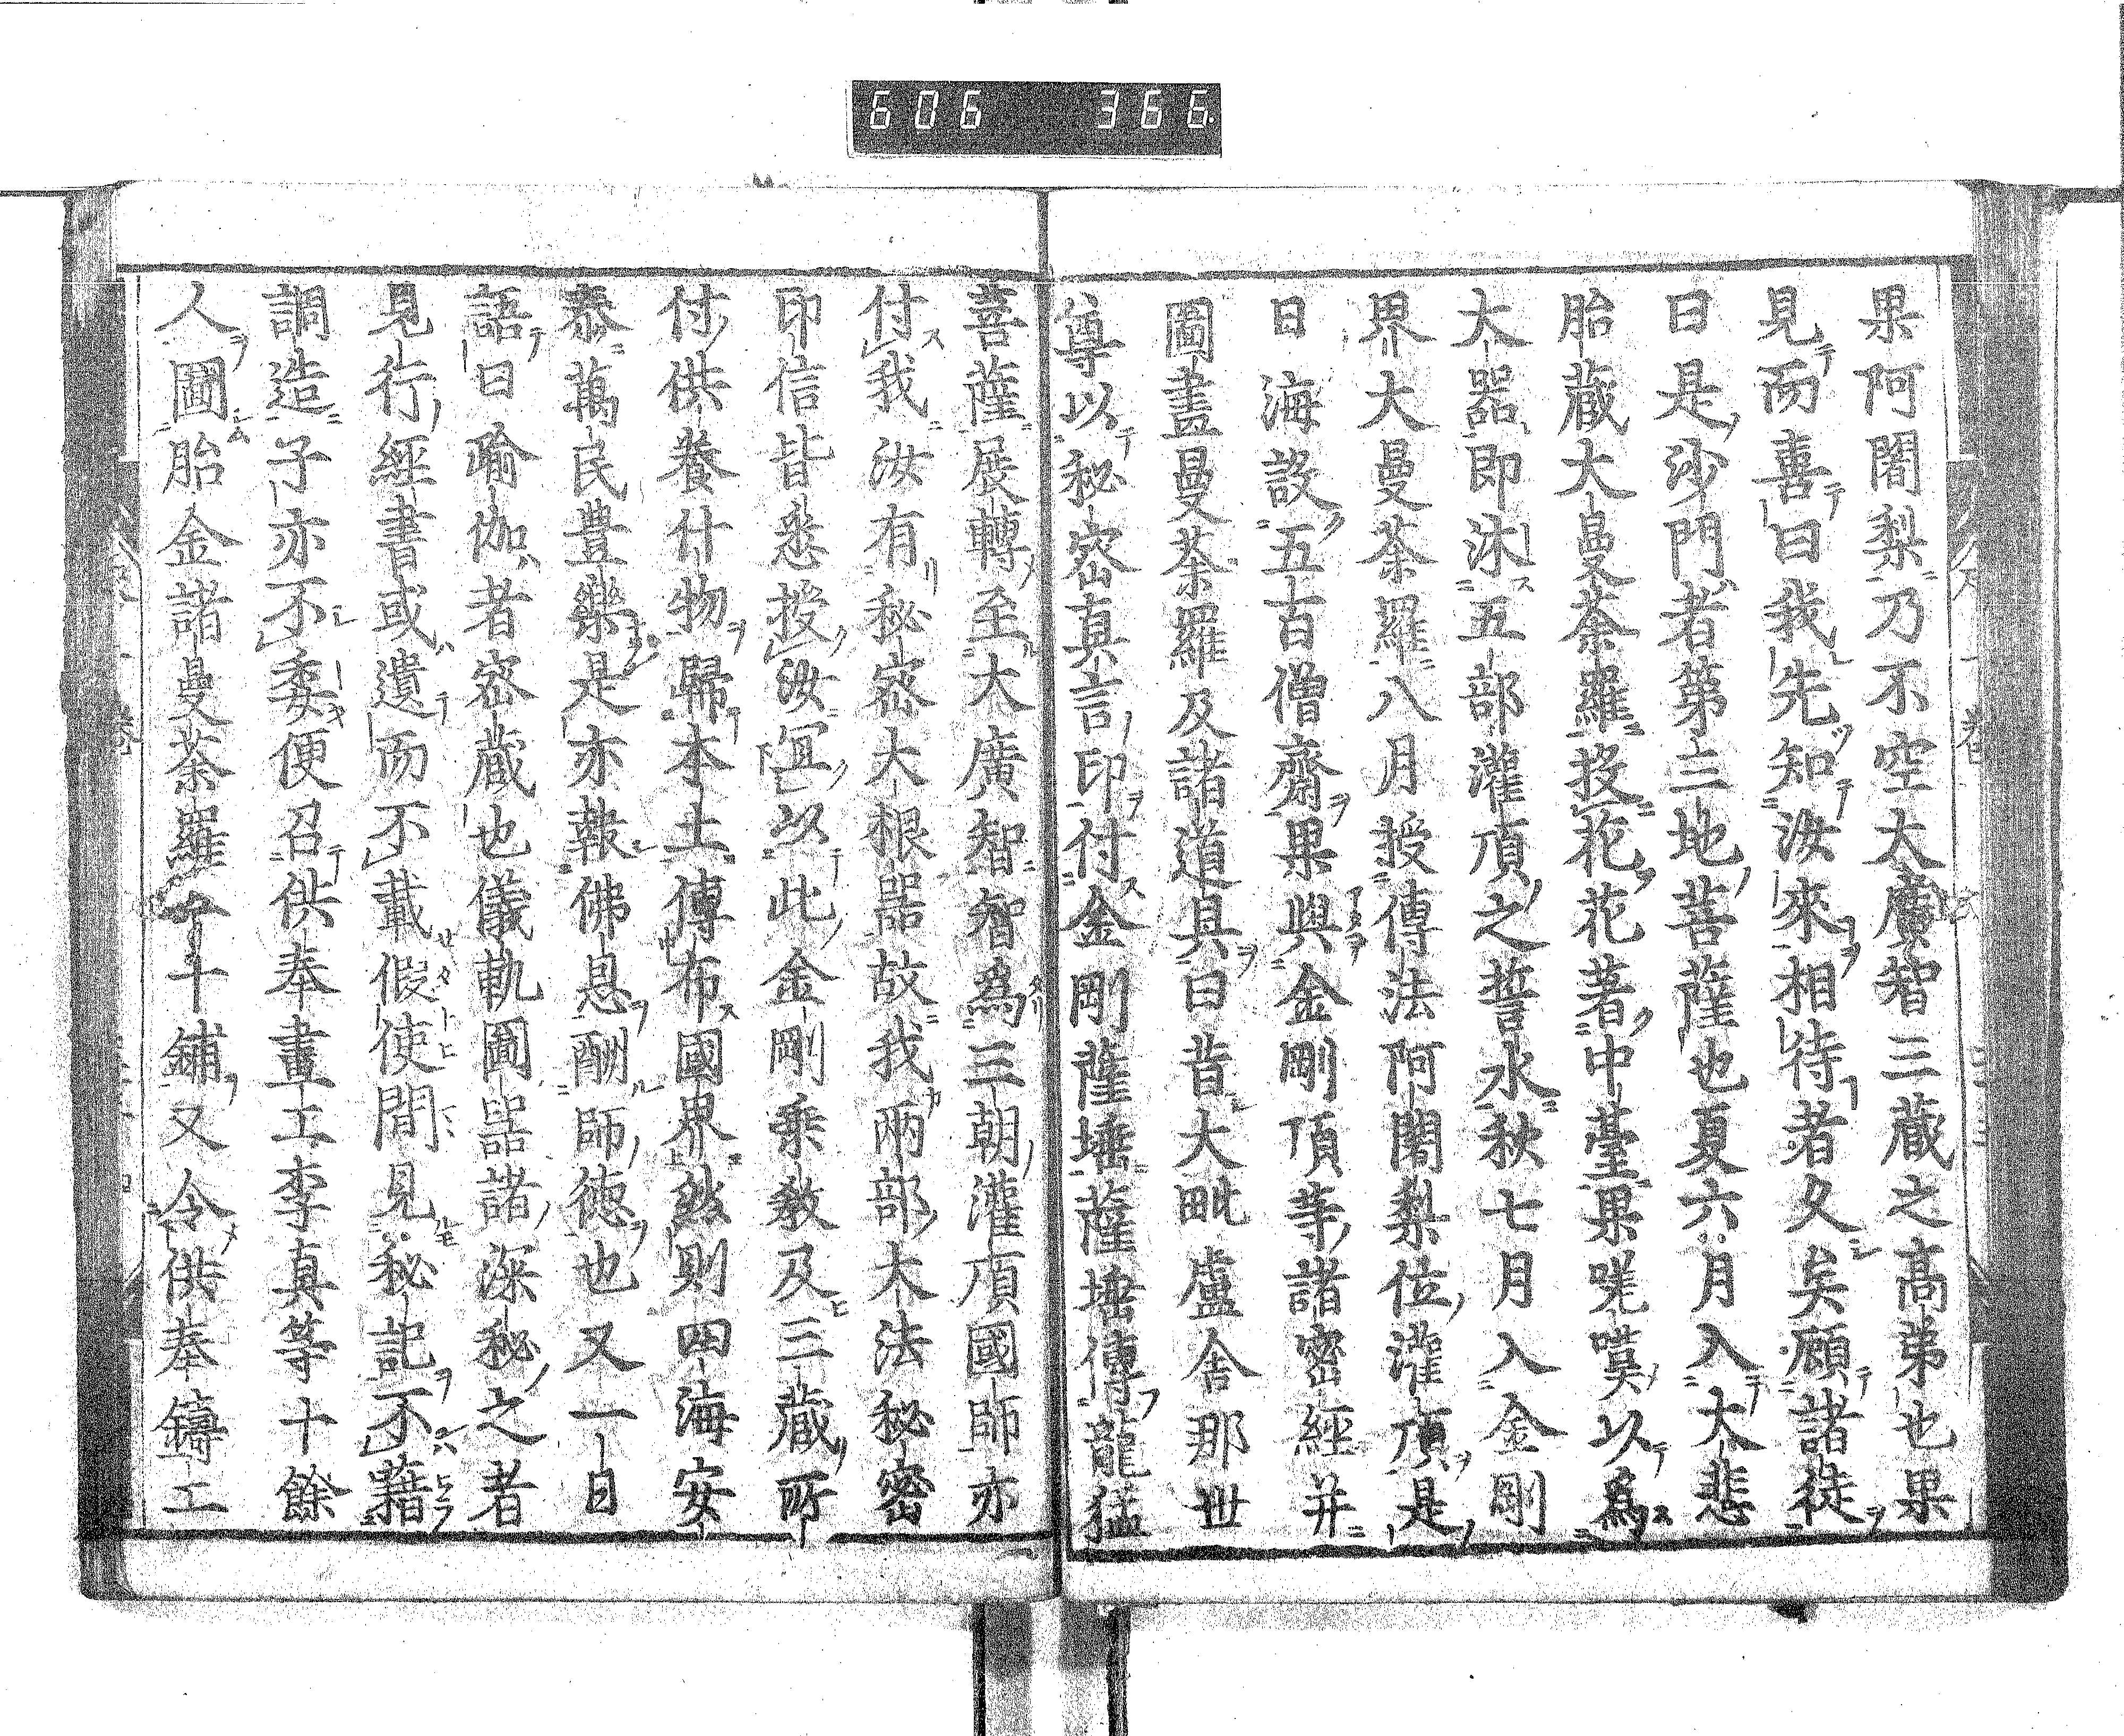 606 366
果阿闍梨乃不空大廣智三蔵之高弟也果
見而喜曰我先知汝來相待者久矣顧諸徒
曰是沙門者第三地菩薩也夏六月入大悲
胎蔵大曼荼羅投花花著中臺果嗟嘆以爲
大器即沐五部灌頂之誓水秋七月入金剛
界大曼荼羅八月授傳法阿闍梨位灌頂是
日海設五百僧齋果與金剛頂等諸密經并
圖畫曼荼羅及諸道具曰昔大毗盧舍那世
尊以秘密真言印付金剛薩埵薩埵傳龍猛
菩薩展轉至大廣智智爲三朝灌頂國師亦
付我汝有秘密大根器故我兩部大法秘密
印信皆悉授汝冝以此金剛乗教及三蔵所
付供養什物歸本土傳布國界然則四海安
泰萬民豊樂是亦報佛恩酬師德也又一日
語曰瑜伽者密蔵也儀軌圖器諸深秘之者
見行經書或遺而不載假使間見秘記不藉
調造子亦不委便召供奉畫工李真等十餘
人圖胎金諸曼荼羅十鋪又令供奉鑄工